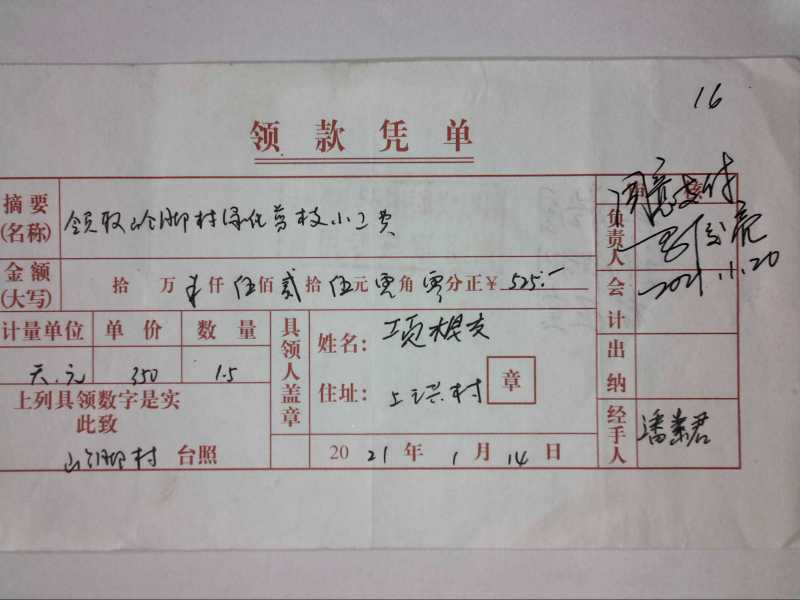 16
领款凭单
摘要(名称) 领取岭脚村绿化剪枝小工费
金额(大写) 拾 万 仟 伍佰 贰拾 伍元 零角 零分正 ¥ 525.-
计量单位 单价 数量
天.元 350 1.5
上列具领数字是实
此致
岭脚村 台照
具领人盖章
姓名: 项根
住址: 上 村 章
2021年 1月 14日
同意支付
负责人
2021.1.20
会计
出纳
经手人 潘 君